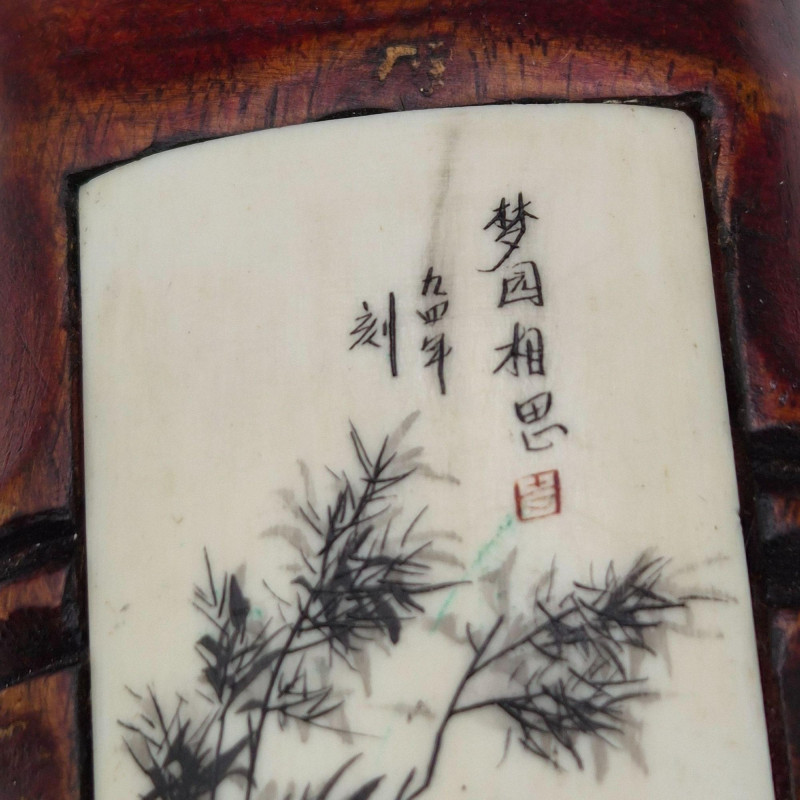 梦园相思
九四年
刻